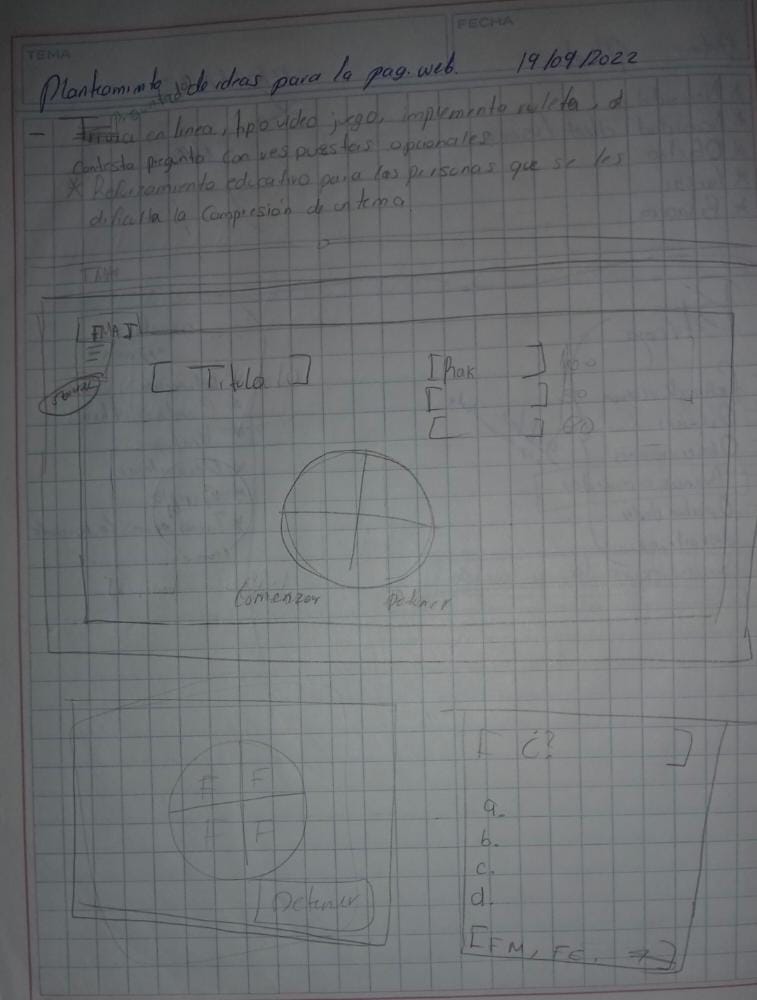 TEMA
FECHA
Planteamiento de ideas para la pag. web. 19/09/2022
Preguntados
- Trivia en linea, tipo video juego, implementa ruleta, al
contesta pregunta con respuestas opcionales
* Reforzamiento educativo para las personas que se les
dificulta la Compresión de un tema.
[ Titulo ]
Comenzar
Detener
F F
F F
Detener
[ ¿? ]
a.
b.
c.
d.
[FM, FE. → ]